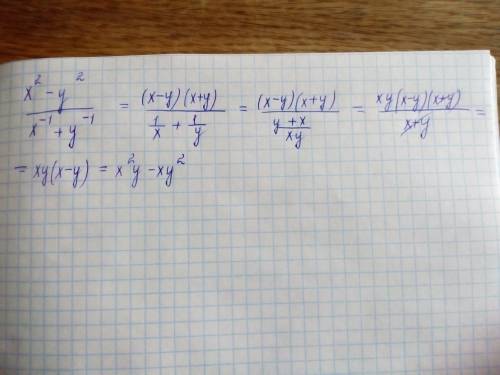 (x² - y²)/(x⁻¹ + y⁻¹) = ((x-y)(x+y))/(1/x + 1/y) = ((x-y)(x+y))/((y+x)/(xy)) = (xy(x-y)(x+y))/(x+y) =
= xy(x-y) = x²y - xy²